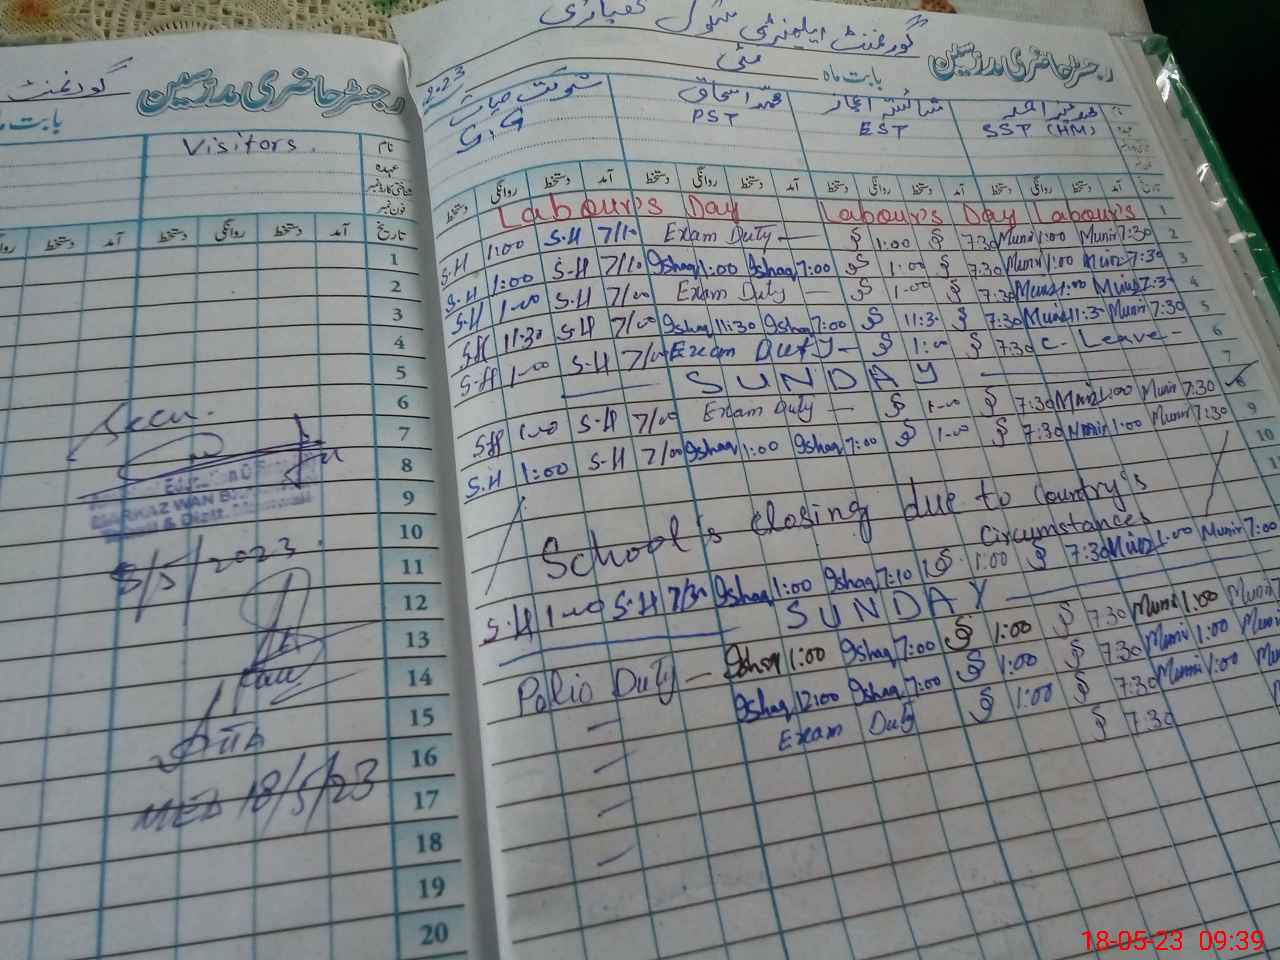 رجسٹر حاضری مدرسین
گورنمنٹ
Visitors.
نام
عہدہ
شناختی کارڈ نمبر
فون نمبر
تاریخ آمد دستخط روانگی دستخط آمد دستخط
1
2
3
4
5
6
7
8
9
10
11
12
13
14
15
16
17
18
19
20
Seen.
MARKAZ WAN
5/5/2023
18/5/23
رجسٹر حاضری مدرسین
گورنمنٹ ایلمنٹری سکول
بابت ماہ مئی 2023
SST (HM)
EST
محمد اسحاق
PST
شوکت حیات
تاریخ آمد دستخط روانگی دستخط آمد دستخط روانگی دستخط آمد دستخط روانگی دستخط آمد دستخط روانگی دستخط
1 Labour's Day Labour's Day Labour's
2 S.H 1:00 S.H 7/10 Exam Duty — 1:00 7:30 Munir 1:00 Munir 7:30
3 S.H 1:00 S.H 7/10 Ishaq 1:00 Ishaq 7:00 1:00 7:30 Munir 1:00 Munir 7:30
4 S.H 1:00 S.H 7/00 Exam Duty — 1:00 7:30 Munir 1:00 Munir 7:30
5 S.H 11:30 S.H 7/00 Ishaq 11:30 Ishaq 7:00 11:30 7:30 Munir 11:30 Munir 7:30
6 S.H 1:00 S.H 7/00 Exam Duty — 1:00 7:30 C. Leave -
7 SUNDAY
8 S.H 1:00 S.H 7/00 Exam Duty — 1:00 7:30 Munir 1:00 Munir 7:30
9 S.H 1:00 S.H 7/00 Ishaq 1:00 Ishaq 7:00 1:00 7:30 Munir 1:00 Munir 7:30
10
School's closing due to country's
circumstances
S.H 1:00 S.H 7/30 Ishaq 1:00 Ishaq 7:10 1:00 7:30 Munir 1:00 Munir 7:00
SUNDAY
Polio Duty — Ishaq 1:00 Ishaq 7:00 1:00 7:30 Munir 1:00 Munir
Ishaq 12:00 Ishaq 7:00 1:00 7:30 Munir 1:00
Exam Duty 1:00 7:30 Munir 1:00
7:30
18-05-23 09:39